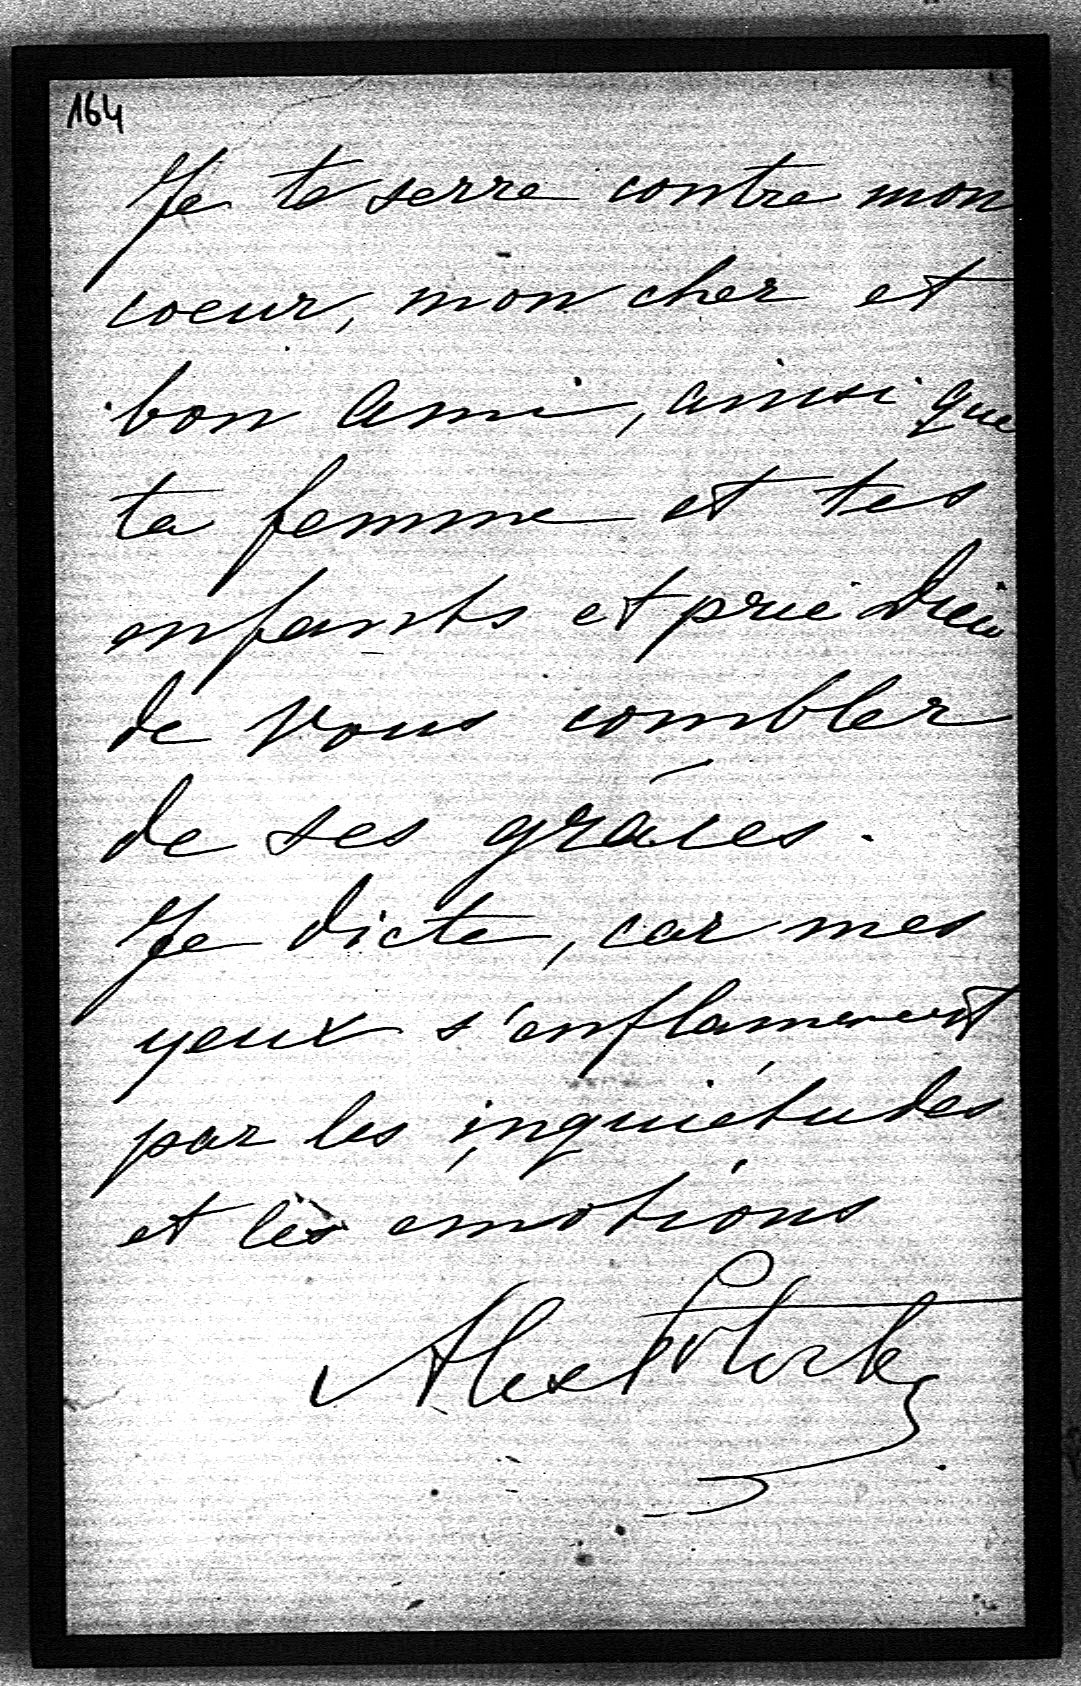 164
Je te serre contre mon
coeur, mon cher et
bon ami, ainsi que
ta femme et tes
enfants et prie Dieu
de vous combler
de ses grâces.
Je dicte, car mes
yeux s'enflamment
par les inquiétudes
et les émotions
Alex